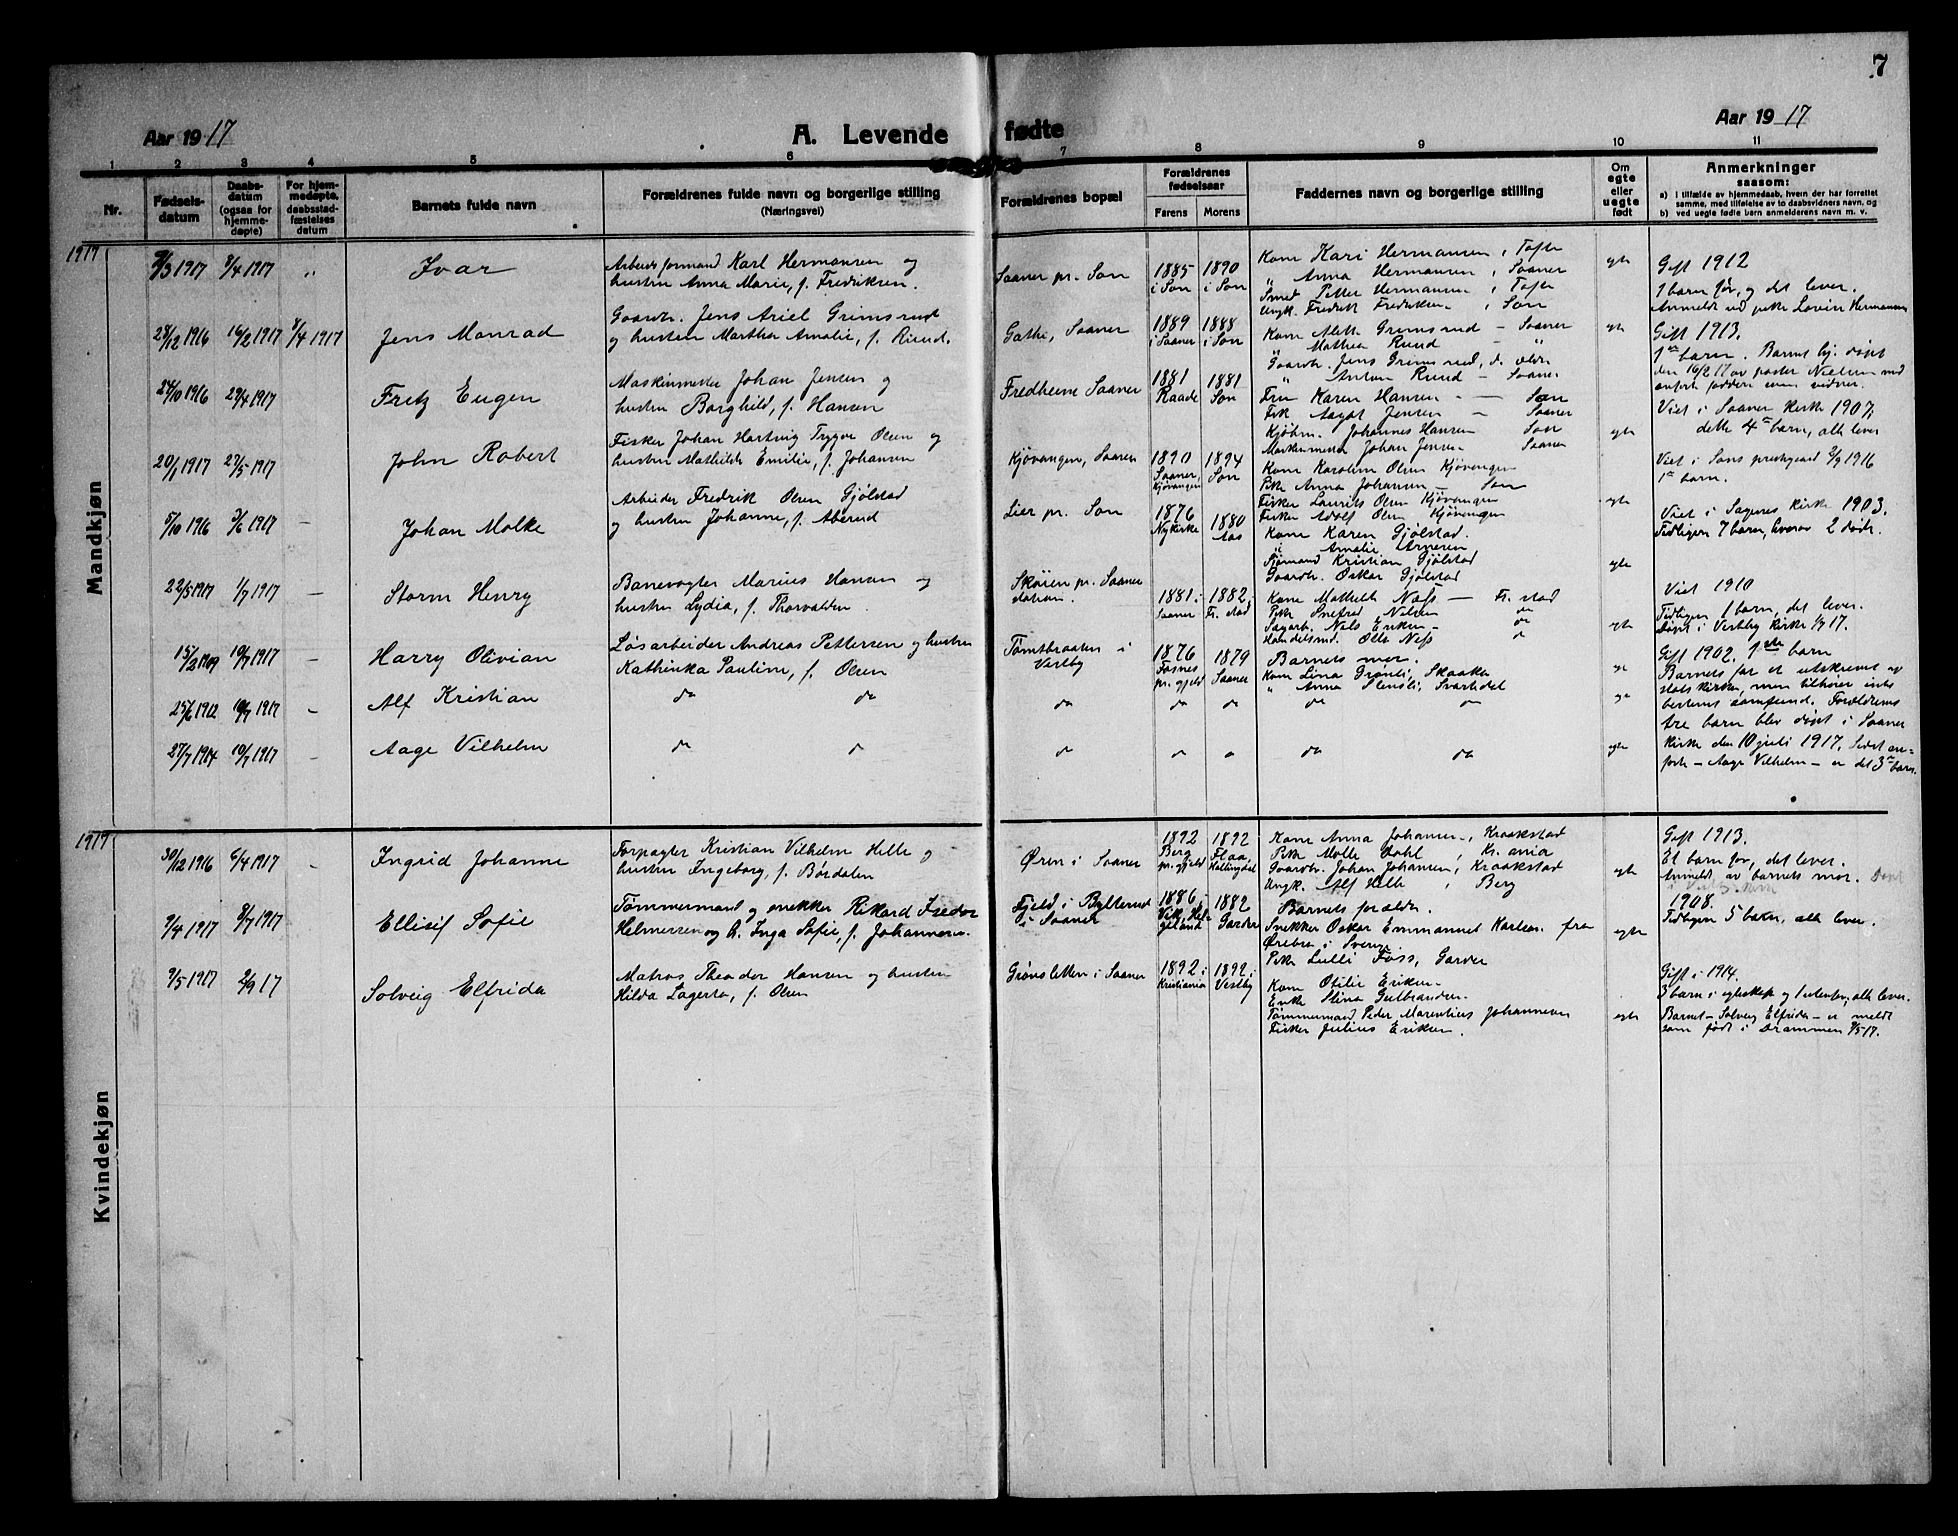 7
Aar 1917
A. Levende fødte
Aar 1917
1 2 3 4 5 6 7 8 9 10 11
Nr.
Fødsels-
datum
Daabs-
datum
(ogsaa for
hjemme-
døpte)
For hjem-
medøpte,
daabsstad-
fæstelses
datum
Barnets fulde navn
Forældrenes fulde navn og borgerlige stilling
(Næringsvei)
Forældrenes bopæl
Forældrenes
fødselsaar
Farens Morens
Faddernes navn og borgerlige stilling
Om
egte
eller
uegte
født
Anmerkninger
saasom:
a) i tilfælde av hjemmedaab, hvem der har forrettet
samme, med tilføielse av to daabsvidners navn, og
b) ved uegte fødte barn anmelderens navn m. v.
Mandkjøn
1917
9/3 1917 9/4 1917 "
Ivar
Arbeidsformand Karl Hermansen og
hustru Anna Marie, f. Fredriksen.
Saaner pr. Son
1885 i Son
1890 i Son
Kone Kari Hermansen, Tofte
" Anna Hermansen, Saaner
Smed Petter Hermansen, Tofte
Ungk. Fredrik Fredriksen, Son
egte
Gift 1912
1 barn før, og det lever.
28/12 1916 16/2 1917 9/4 1917
Jens Monrad
Gaardbr. Jens Ariel Grimsrud
og hustru Martha Amalie, f. Riund.
Saaner
1889 i Saaner
1888 i Son
Grimsrud - Saaner
" Mathea Rund - "
Gaardbr. Jens Grimsrud, d. ældr.
" Anton Rund - Saaner
egte
Gift 1913.
1ste barn. Barnet hj. døpt
den 16/2 17 av pastor Nielsen med
24/10 1916 29/4 1917
Fritz Eugen
Maskinmester Johan Jensen og
hustru Borghild, f. Hansen
Fredheim Saaner
1881 Raade
1881 Son
Fru Karen Hansen - Son
Frk Aagot Jensen - Saaner
Kjøbm. Johannes Hansen Son
Maskinmester Johan Jensen Saaner
egte
Viet i Saaner kirke 1907,
dette 4de barn, alle lever
20/1 1917 27/5 1917
John Robert
Fisker Johan Hartvig Trygve Olsen og
hustru Mathilde Emilie, f. Johansen
Kjøvangen, Saaner
1890 Saaner, Kjøvangen
1894 Son
Kone Karoline Olsen Kjøvangen
Pike Anna Johansen - Son
Fisker Laurits Olsen Kjøvangen
Fisker Adolf Olsen Kjøvangen
egte
Viet i Sons prestegaard 1916
1ste barn.
5/10 1916 3/6 1917 -
Johan Molke
Arbeider Fredrik Olsen Gjølstad
og hustru Johanne, f. Aberud
Lier pr. Son
1876 Nykirke
1880 Aas
Kone Karen Gjølstad.
" Amalie
Sjømand Kristian Gjølstad
Gaardbr. Oskar Gjølstad
egte
Viet i Sagnes kirke 1903.
Tidligere 7 barn, hvorav 2 døde.
22/5 1917 1/7 1917 -
Storm Henry
Banevogter Marius Hansen og
hustru Lydia, f. Thorvaldsen.
Skøien pr. Saaner
station.
1881. Saaner
1882. Fr.stad
Kone Mathilde Næss - Fr.stad
Pike Snefrid Nilsen do
Sagarb. Nils Eriksen - do
Handelsmd. Olle Næss do
egte
Viet 1910
Tidligere 1 barn, det lever.
Døpt i Vestby kirke 1/7 17.
15/3 1909 10/7 1917 -
Harry Olivian
Løsarbeider Andreas Pettersen og hustru
Kathinka Pauline, f. Olsen
Tømtbraaten i
Vestby
1876 Fosnes pr.gjeld
1879 Saaner
Barnets mor.
Kone Lina Grønli, Skaaka
" Anna Stensli, Svartedal
egte
Gift 1902. 1ste barn
Barnets far er utskrevet av
statskirken, men tilhører intet
bestemt samfund. Forældrenes
tre barn blev døpt i Saaner
kirke den 10 juli 1917. Sidst an-
førte - Aage Vilhelm - er det 3de barn.
25/6 1912 10/7 1917 -
Alf Kristian
do do
do do do do do
egte
27/7 1914 10/7 1917 -
Aage Vilhelm
do do
do do do do do
egte
Kvindekjøn
1917
30/12 1916 6/4 1917 -
Ingrid Johanne
Forpagter Kristian Vilhelm Helle og
hustru Ingeborg, f. Børdalen
Øren i Saaner
1892 Berg pr.gjeld
1892 Flaa, Hallingdal
Kone Anna Johansen, Kraakstad
Pike Molle Dahl, Kr.ania
Gaardbr. Johan Johansen, Kraakstad
Ungk. Alf Helle, Berg
egte
Gift 1913.
Et barn før, det lever.
Anmeldt av barnets mor. Døpt
i Vestby kirke
9/4 1917 8/7 1917
Ellisif Sofie
Tømmermand og snekker Rikard Fredor
Helmersen og h. Inga Sofie, f. Johannesen
Fjeld i Bylterud
i Saaner
1886, Vik, Hel-
geland
1882 Garder
Barnets forældre.
Snekker Oskar Emmanuel Karlsen fra
Ørebro i Sverige
Pike Lulli Foss, Garder
egte
1908.
Tidligere 5 barn, alle lever.
9/5 1917 2/9 17
Solveig Elfrida
Matros Theodor Hansen og hustru
Hilda Lagerta, f. Olsen
Grønsletten i Saaner
1892 i Kristiania
1892 i Vestby
Kone Otilie Eriksen
Enke Stina Gulbrandsen.
Tømmermand Peder Marentius Johannesen
Fisker Julius Eriksen.
egte
Gift i 1914.
3 barn i egteskap og 1 utenfor, alle lever.
Barnet - Solveig Elfrida - er meldt
som født i Drammen 9/5 17.